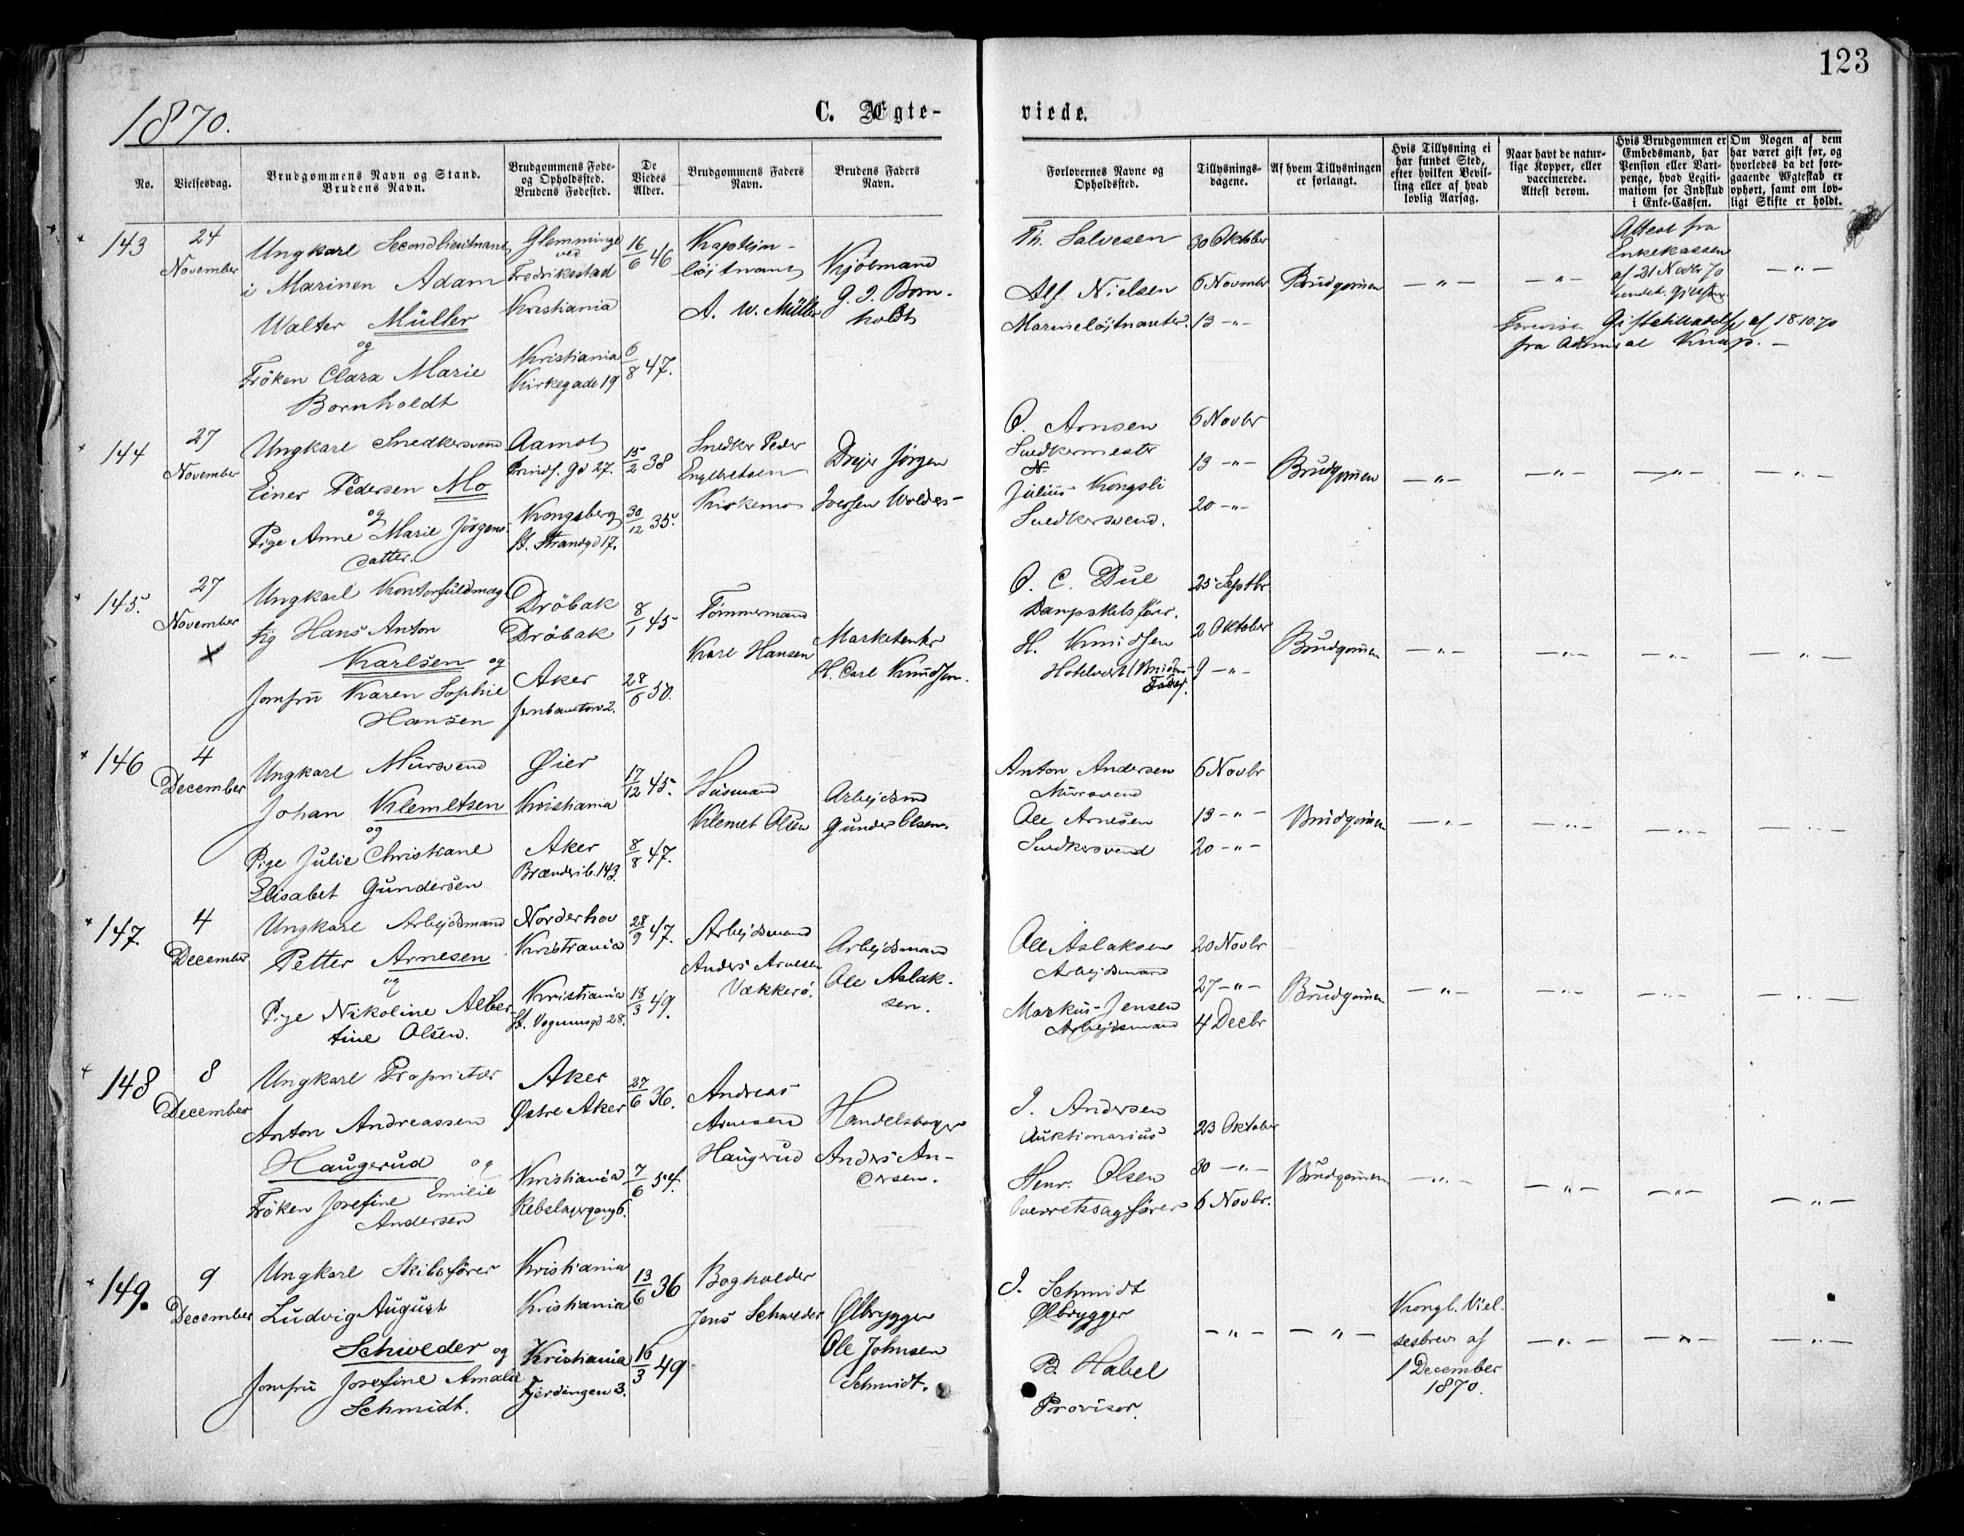 123
1870.
C. Ægte-
viede.
No.
Vielsesdag.
Brudgommens Navn og Stand.
Brudens Navn.
Brudgommens Føde-
og Opholdssted.
Brudens Fødested.
De
Viedes
Alder.
Brudgommens Faders
Navn.
Brudens Faders
Navn.
Forlovernes Navne og
Opholdssted.
Tillysnings-
dagene.
Af hvem Tillysningen
er forlangt.
Hvis Tillysning ei
har fundet Sted,
efter hvilken Bevil-
ling eller af hvad
lovlig Aarsag.
Naar havt de natur-
lige Kopper, eller
vaccinerede.
Attest derom.
Hvis Brudgommen er
Embedsmand, har
Pension eller Vart-
penge, hvad Legiti-
mation for Indskud
i Enke-Cassen.
Om Nogen af dem
har været gift før, og
hvorledes da det fore-
gaaende Ægteskab er
ophørt, samt om lov-
ligt Skifte er holdt.
143
24
November
Ungkarl Secondlieutnant
i Marinen Adam
Walter Müller
og
Fröken Clara Marie
Bornholdt
Glemminge
ved
Fredrikstad
Kristiania
Kristiania
Kirkegade 19
16/6 46
6/8 47.
Kaptein-
löjtnant
A. W. Müller
Kjøbmand
G. J. Born-
holdt
Th. Salvesen
Alf Nielsen
Marineløjtnanter.
30 Oktober
6 Novembr
13 -"-
Brudgommen
-"-
-"-
Attest fra
Enkekassen
af 21 Novbr 70
-"-
Giftetilladelse af 18.10.70
fra Admiral Knap. -
144
27
November
Ungkarl Snedkersvend
Einer Pedersen Mo
og
Pige Anne Marie Jörgens-
datter.
Aamot
Prinds. Gd 27.
Kongsberg
St. Strandgd 17.
15/2 38
30/12 35.
Snedker Peder
Engebretsen
Kirkemo
Drejer Jørgen
Iversen Wolder-
O. Arnsen
Snedkermester
Julius Kongsli
Snedkersvend.
6 Novbr
13 -"-
20 -"-
Brudgommen
-"-
-"-
-"-
-"-
145.
27
November
Ungkarl Kontorfuldmæg-
tig Hans Anton
Karlsen og
Jomfru Karen Sophie
Hansen
Dröbak
Dröbak
Aker
Jernbanetorv 2.
8/1 45
28/6 50.
Tømmermand
Karl Hansen
Marketenter
H. Carl Knudsen.
O. C. Due
Dampskibsfører.
H. Knudsen
Hotelvert (Brudens
Fader).
25 Septbr
2 Oktober
9 -"-
Brudgommen
-"-
-"-
-"-
-"-
146
4
December
Ungkarl Mursvend
Johan Klemetsen
og
Pige Julie Christiane
Elisabet Gundersen
Øier
Kristiania
Aker
Brænderib. 143.
17/12 45.
8/8 47.
Husmand
Klemet Olsen
Arbejdsmd
Gunder Olsen.
Anton Andersen
Mursvend
Ole Arnesen
Snedkersvend
6 Novbr
13 -"-
20 -"-
Brudgommen
-"-
-"-
-"-
-"-
147.
4
December
Ungkarl Arbejdsmand
Petter Arnesen
og
Pige Nikoline Alber-
tine Olsen.
Norderhov
Kristiania
Kristiania
St. Vognmgd 28.
28/9 47.
18/3 49.
Arbejdsmand
Anders Arnesen
Vækkerö.
Arbejdsmand
Ole Aslak-
sen.
Ole Aslaksen
Arbejdsmand
Markus Jensen
Arbejdsmand
20 Novbr
27 -"-
4 Decbr
Brudgommen
-"-
-"-
-"-
-"-
148
8
December
Ungkarl Proprietær
Anton Andreassen
Haugerud og
Fröken Josefine Emilie
Andersen
Aker
Østre Aker
Kristiania
Rebslagergang 6.
27/6 36.
7/6 54.
Andreas
Arnesen
Haugerud
Handelsborger
Anders An-
dersen.
J. Andersen
Auktionarius
Henr. Olsen
Overretsagfører
23 Oktober
30 -"-
6 Novbr.
Brudgommen
-"-
-"-
-"-
-"-
149.
9
December
Ungkarl Skibsfører
Ludvig August
Schweder og
Jomfru Josefine Amalie
Schmidt.
Kristiania
Kristiania
Kristiania
Fjerdingen 3.
13/6 36
16/3 49
Bogholder
Jens Schweder
Ølbrygger
Ole Johnsen
Schmidt.
J. Schmidt
Ølbrygger
P. Habel
Provisor.
-"-
-"-
Kongl. Viel-
sesbrev af
1 December
1870.
-"-
-"-
-"-